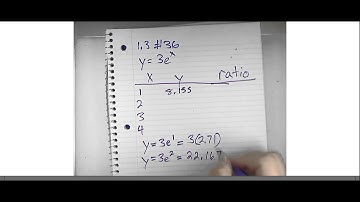 1.3 #36
y = 3e^x
x y ratio
1 8.155
2
3
4
y = 3e^1 = 3(2.71)
y = 3e^2 = 22.167